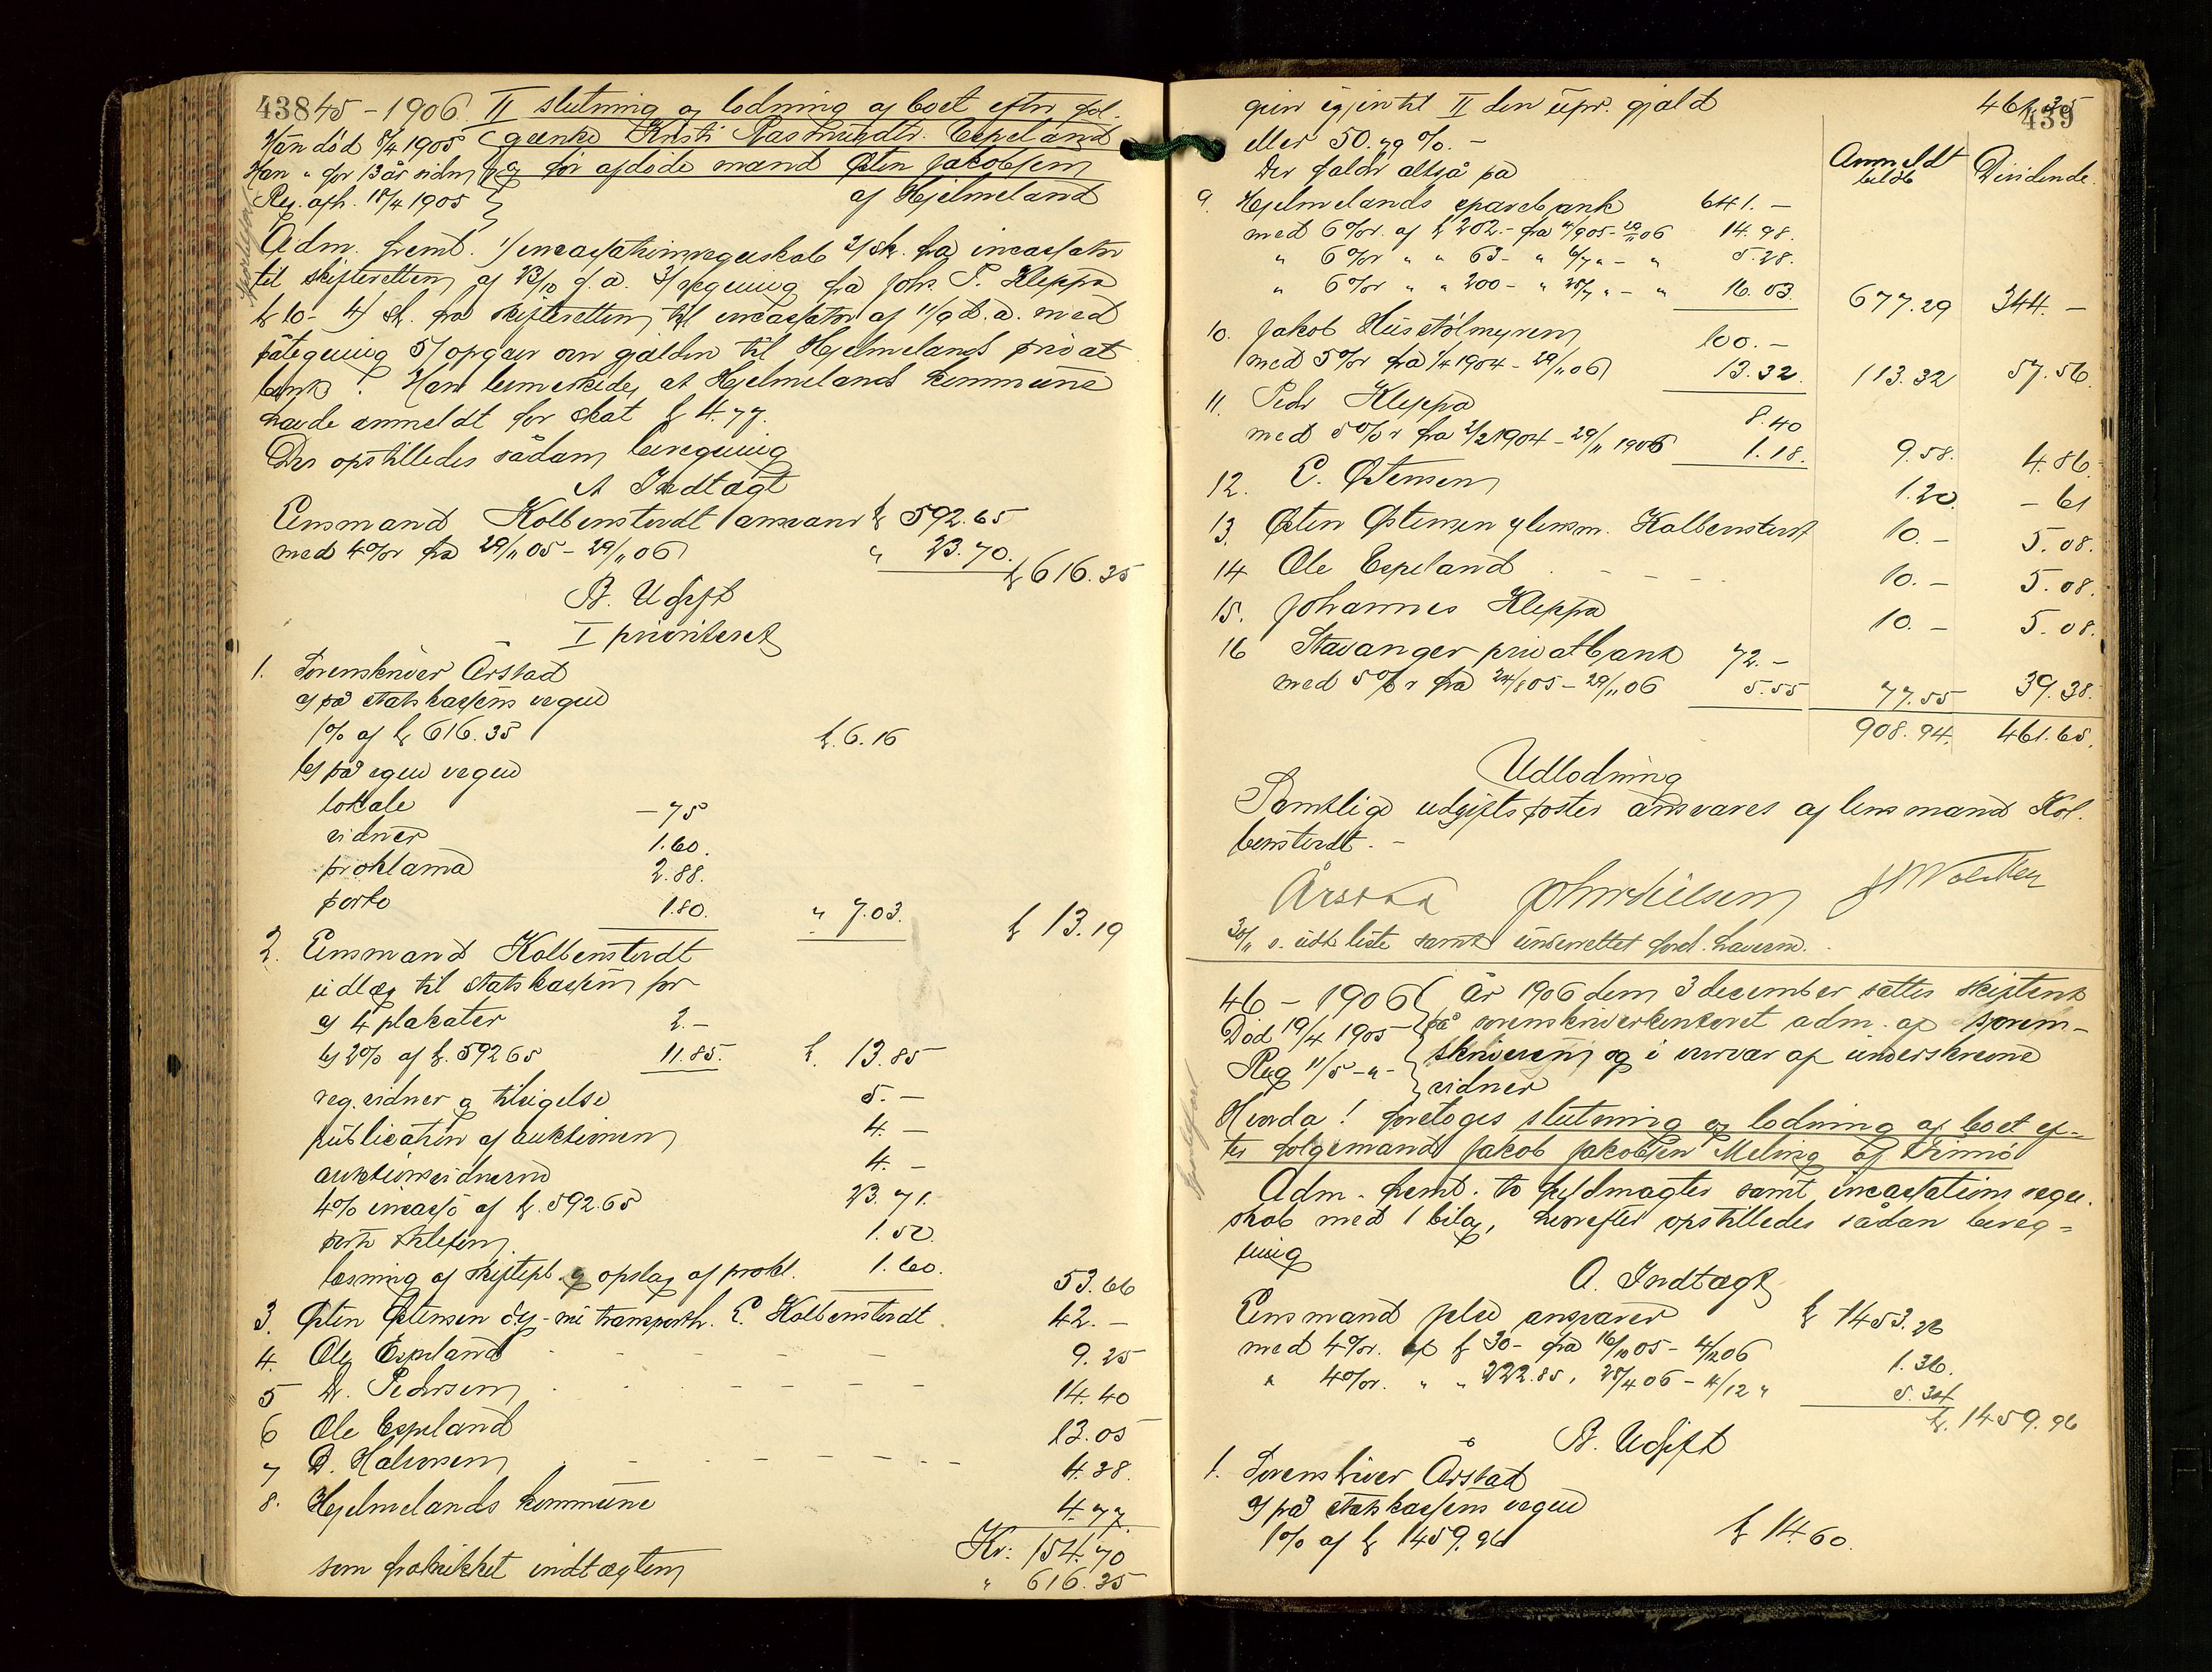 438
45 - 1906. II slutning og lodning af boet efter føl-
geenke Kristi Rasmusdtr. Espeland
og før afdøde mand Østen Jakobsen
af Hjelmeland
Hun død 8/4 1905
Han " for 13 år siden
Reg. afh. 18/4 1905
Adm. freml. 1/ incassationsregnskab 2/ sk. fra incassator
til skifteretten af 23/10 d.a. 3/ regning fra Johs. P. Kleppa
kr 10- 4/ sk. fra skifteretten til incassator af 11/9 d.a. med
påtegning 5/ opgave over gjælden til Hjelmelands privat
bank! Han bemærkede, at Hjelmelands kommune
havde anmeldt for skat kr 4.77.
Der opstilledes sådan beregning
A Indtægt
Lensmand Kolbenstvedt ansvarer kr 592.65
med 4% r fra 29/11 05 - 29/11 06 " 23.70.
kr 616.35
B. Udgift
I prioriteret
1. Sorenskriver Årstad
a) på statskassens vegne
1% af kr 616.35 kr. 6.16
b) på egne vegne
lokale - 75
vidner 1.60.
proklama 2.88.
porto 1.80. " 7.03. kr 13.19
2. Lensmand Kolbenstvedt
udlæg til statskassen for
a) 4 plakater 2.-
b) 2% af kr. 592 65 11.85. kr. 13.85
reg. vidner og tilsigelse 5.-
publication af auktionen 4.-
auktionsvidnerne 4.-
4% incasso af kr. 592.65 23.71.
porto telefon 1.50.
læsning af skiftepl. og opslag af prokl. 1.60. 53.66
3. Østen Østensen dy - nu transporth. E. Kolbenstvedt. 42.-
4. Ole Espeland - - - - 9.25
5 Dr. Pedersen - - - - 14.40
6 Ole Espeland 13.05
7 D. Halvorsen - - - - 4.38.
8. Hjelmelands kommune 4.77.
Kr: 154.70
som fratrukket indtægten " 616.35
439
giver igjen til II den upr. gjæld 461.35
eller 50.79 %. -
Der falder altså på
Anmeldt beløb Dividende.
9. Hjelmelands sparebank 641. -
med 6% r. af kr 202.- fra 4/9 05 - 29/11 06 14.98.
" 6% r " " 63- " 6/7 " - " 5.28.
" 6% r " " 200- " 28/7 " - " 16.03. 677.29 344. -
10. Jakob Husstølmyren 100. -
med 5% r fra 1/4 1904 - 29/11 06 13.32. 113.32 57.56.
11. Peder Kleppa 8.40
med 5% r fra 2/2 1904 - 29/11 1906 1.18. 9.58. 4.86.
12. E. Østensen 1.20. - 61
13. Østen Østensen v lensm. Kolbenstvedt 10.- 5.08.
14 Ole Espeland - - - 10.- 5.08.
15. Johannes Kleppa 10.- 5.08.
16 Stavanger privatbank 72.-
med 5% r fra 24/8 05 - 29/11 06 5.55 77.55 39.38.
908.94. 461.65.
Udlodning
Samtlige udgiftsposter ansvares af lensmand Kol-
benstvedt. -
Årstad John Nilsen
30/11 s. udl. liste samt underrettet ford. haverne.
46 - 1906
Død 19/4 1905
Reg 11/5 - " -
År 1906 den 3 december sattes skifteret
på sorenskriverkontoret adm. af soren-
skriveren og i overvær af underskrevne
vidner
Hvorda! foretoges slutning og lodning af boet ef-
ter følgemand Jakob Jakobsen Meling af Finnø
Adm. freml. to fuldmagter samt incassationsregn-
skab med 1 bilag, hvorefter opstilledes sådan bereg-
ning
A. Indtægt
Lensmand Jelsa ansvarer kr 1453.26
med 4% r. af kr 30- fra 16/10 05 - 4/12 06 1.36.
" 4% r. " " 222.85, 28/4 06 - 4/12 " 5.34
kr. 1459.96
B. Udgift
1. Sorenskriver Årstad
a) på statskassens vegne
1% af kr 1459.96 kr 14.60.